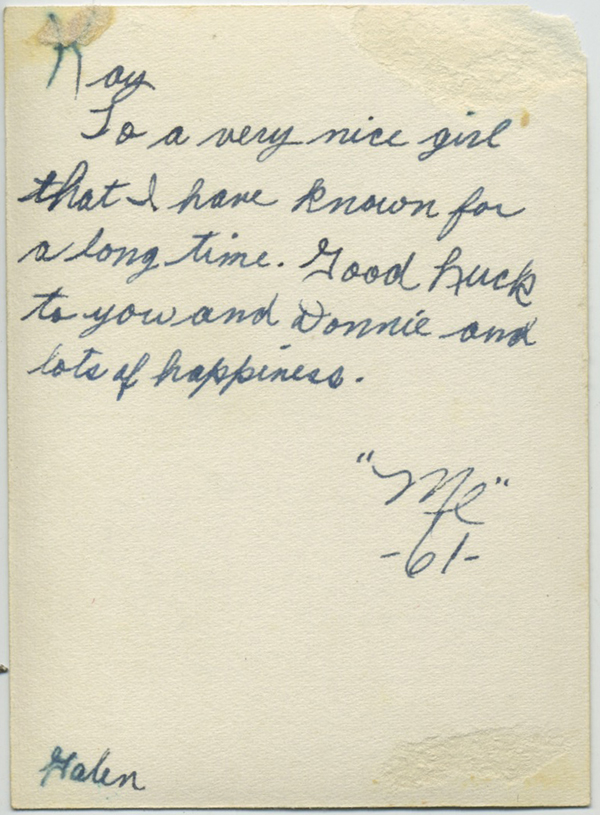 Kay
To a very nice girl
that I have known for
a long time. Good Luck
to you and Donnie and
lots of happiness.
"Me"
-61-
Galen